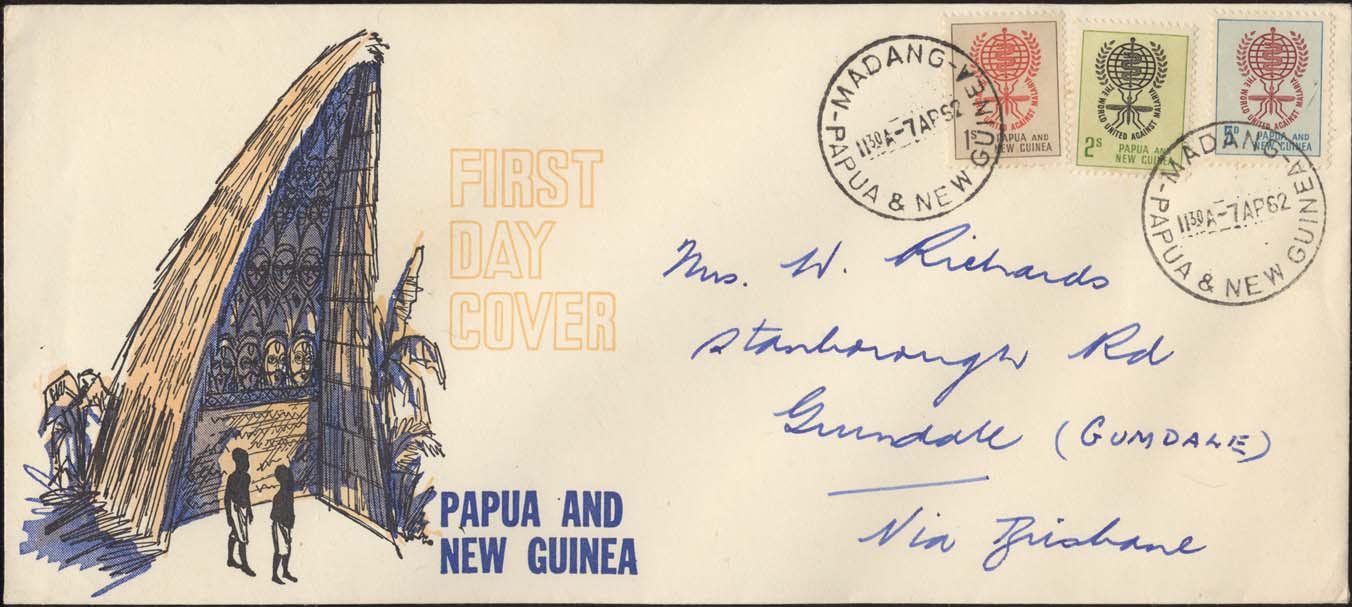 THE WORLD UNITED AGAINST MALARIA
1S PAPUA AND
NEW GUINEA
THE WORLD UNITED AGAINST MALARIA
2S PAPUA AND
NEW GUINEA
THE WORLD UNITED AGAINST MALARIA
5D PAPUA AND
NEW GUINEA
-MADANG-
PAPUA & NEW GUINEA
1130A-7AP62
-MADANG-
PAPUA & NEW GUINEA
1130A-7AP62
FIRST
DAY
COVER
Mrs. W. Richards
Stanborough Rd
Gumdale (GUMDALE)
Via Brisbane
PAPUA AND
NEW GUINEA